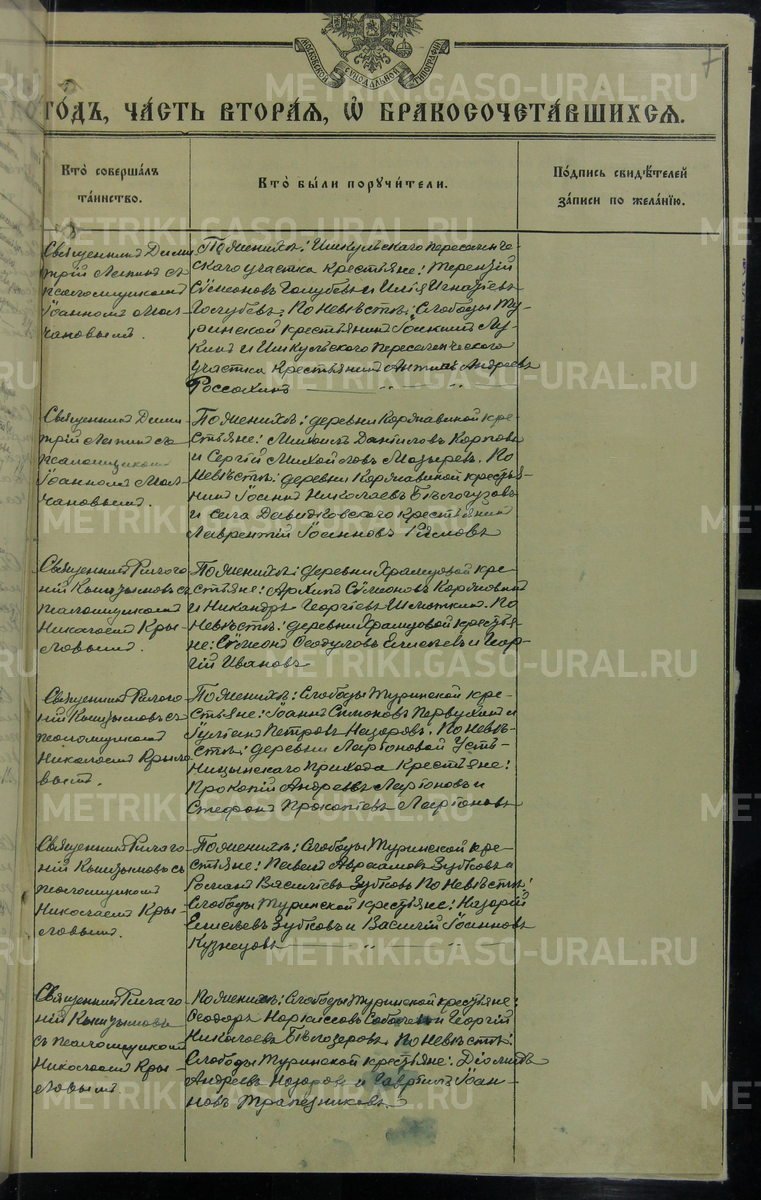 МОСКОВСКОЙ СѴНОДАЛЬНОЙ ТИПОГРАФІИ
7
ГО́ДЪ, ЧА́СТЬ ВТОРА́Я, Ѡ҆ БРАКОСОЧЕТА́ВШИХСЯ.
Кто̀ соверша́лъ
та́инство.
Кто̀ бы́ли порꙋчи́тели.
По́дпись свидѣ́телей
за́писи по жела́нїю.
Священникъ Дими
трій Лапинъ съ
псаломщикомъ
Іоанномъ Мол
чановымъ.
По женихѣ: Ишкульскаго переселенче
скаго участка крестьяне: Терентій
Сѵмеоновъ Голубевъ и Илія Игнатіевъ
Голубевъ. По невѣстѣ: Слободы Ту
ринской крестьянинъ Іоакимъ Лу
кинъ и Ишкульскаго переселенческаго
участка крестьянинъ Андреевъ
Россохинъ
Священникъ Дими
трій Лапинъ съ
псаломщикомъ
Іоанномъ Мол
чановымъ.
По женихѣ: деревни Коржавиной кре
стьяне: Михаилъ Даніиловъ Карповъ
и Сергій Михайловъ Мазыревъ. По
невѣстѣ: деревни Коржавиной кресть
янинъ Іоаннъ Николаевъ Бѣлогузовъ
и села Давыдовского крестьянинъ
Лаврентій Іоанновъ
Священникъ Филого
ній Кышымовъ съ
псаломщикомъ
Николаемъ Кры
ловымъ.
По женихѣ: деревни Храмцовой кре
стьяне: Архипъ Сѵмеоновъ Коржавинъ
и Никандръ Георгіевъ Шмоткинъ. По
невѣстѣ: деревни Храмцовой кресть
яне: Сѵмеонъ Ѳеодуловъ Елисѣевъ и Геор
гій Ивановъ
Священникъ Филого
ній Кышымовъ съ
псаломщикомъ
Николаемъ Крыло
вымъ.
По женихѣ: Слободы Туринской кре
стьяне: Іоаннъ Симоновъ Первухинъ и
Іуліанъ Петровъ Назаровъ. По невѣ
стѣ: деревни Ларіоновой Усть-
Ницынскаго прихода крестьяне:
Прокопій Андреевъ Ларіоновъ и
Стефанъ Прокопіевъ Ларіоновъ
Священникъ Филого
ній Кышымовъ съ
псаломщикомъ
Николаемъ Кры
ловымъ.
По женихѣ: Слободы Туринской кре
стьяне: Павелъ Авраамовъ Зубковъ и
Романъ Василіевъ Зубковъ По невѣстѣ:
Слободы Туринской крестьяне: Назарій
Елисѣевъ Зубковъ и Василій Іоанновъ
Кузнецовъ
Священникъ Филого
ній Кышымовъ
съ псаломщикомъ
Николаемъ Кры
ловымъ.
По женихѣ: Слободы Туринской крестьяне:
Ѳеодоръ Наркиссовъ и Георгій
Николаевъ Бѣлозеровъ. По невѣстѣ:
Слободы Туринской крестьяне: Діомидъ
Андреевъ Назаровъ и Гавріилъ Іоан
новъ Трапезниковъ
METRIKI.GASO-URAL.RU